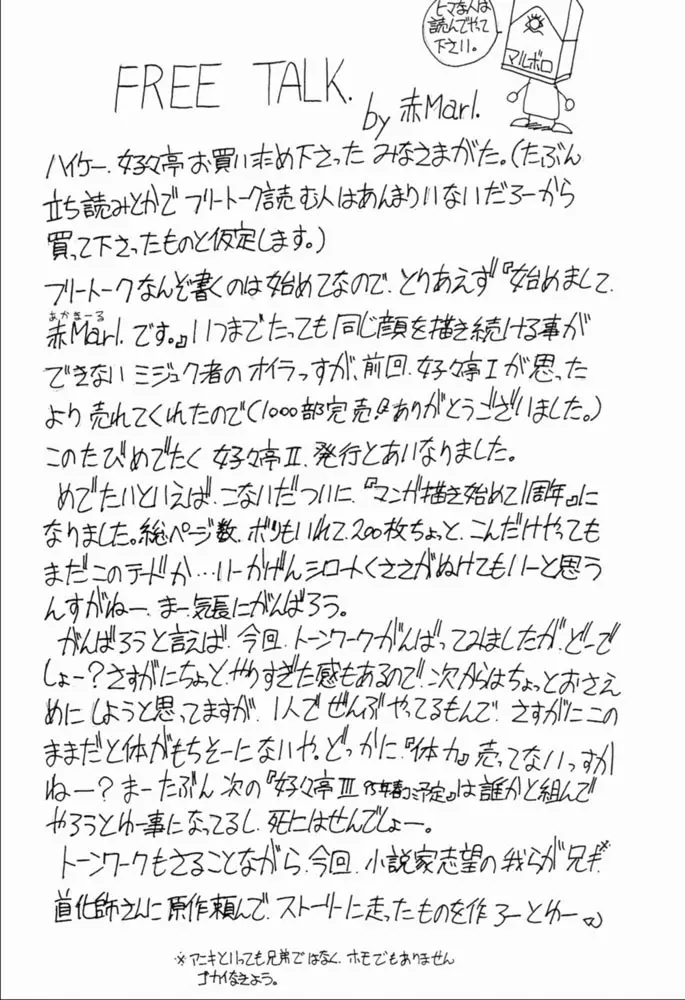 ヒマな人は
読んでやって
下さい。
マルボロ
FREE TALK.
by 赤Marl.
ハイケー、好々亭お買い求め下さったみなさまがた。(たぶん
立ち読みとかでフリートーク読む人はあんまりいないだろーから
買って下さったものと仮定します。)
フリートークなんぞ書くのは始めてなので、とりあえず『始めまして、
あかまーる
赤Marl.です。』いつまでたっても同じ顔を描き続ける事が
できないミジュク者のオイラっすが、前回、好々亭Ⅰが思った
より売れてくれたので(1000部完売!!ありがとうございました。)
このたびめでたく好々亭Ⅱ、発行とあいなりました。
めでたいといえば、こないだついに、『マンガ描き始めて1周年』に
なりました。総ページ数、ボツもいれて、200枚ちょっと、こんだけやっても
まだこのテードか…いーかげんシロートくささがぬけてもいーと思う
んすがねー、まー、気長にがんばろう。
がんばろうと言えば、今回、トーンワークがんばってみましたが、どーで
しょー?さすがにちょっとやりすぎた感もあるので、次からはちょっとおさえ
めにしようと思ってますが、1人でぜんぶやってるもんで、さすがにこの
ままだと体がもちそーにないや。どっかに、『体力』売ってないっすか
ねー?まーたぶん次の『好々亭Ⅲ 95年春ごろ予定』は誰かと組んで
やろうとゆー事になってるし、死にはせんでしょー。
トーンワークもさることながら、今回、小説家志望の我らが兄キ※
道化師さんに原作頼んで、ストーリーに走ったものを作ろーとゆー
※アニキといっても兄弟ではなく、ホモでもありません
ゴカイなきよう。